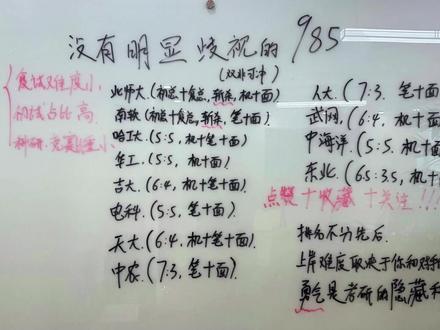 没有明显歧视的985
(双非可冲)
复试难度小
初试占比高
科研.竞赛比重小
北师大.(初试十复试,新年,机十面)
南软(初试十复试,新年,笔十面)
哈工大(5:5,机十笔十面)
华工.(5:5,机十面)
吉大(6:4,机十笔十面)
电科.(5:5,笔十面).
天大.(6:4,机十笔十面)
中农.(7:3,笔十面).
人大.(7:3.笔十面
武网.(6:4,机十面
中海洋.(5:5.机十面
东北.(65:35,机十
点赞十收藏十关注!!!
排名不分先后.
上岸难度取决于你和对手
勇气是考研的隐藏